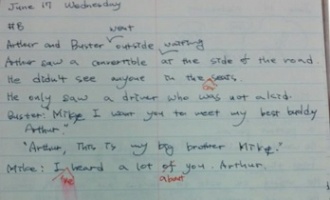 June 17 Wednesday
#8
went
Arthur and Buster outside waiting
Arthur saw a convertible at the side of the road.
He didn't see anyone in the seats.
He only saw a driver who was not a kid.
Buster: Mike I want you to meet my best buddy
Arthur."
"Arthur, This is my big brother Mike."
Mike: I heard a lot of you. Arthur.
about